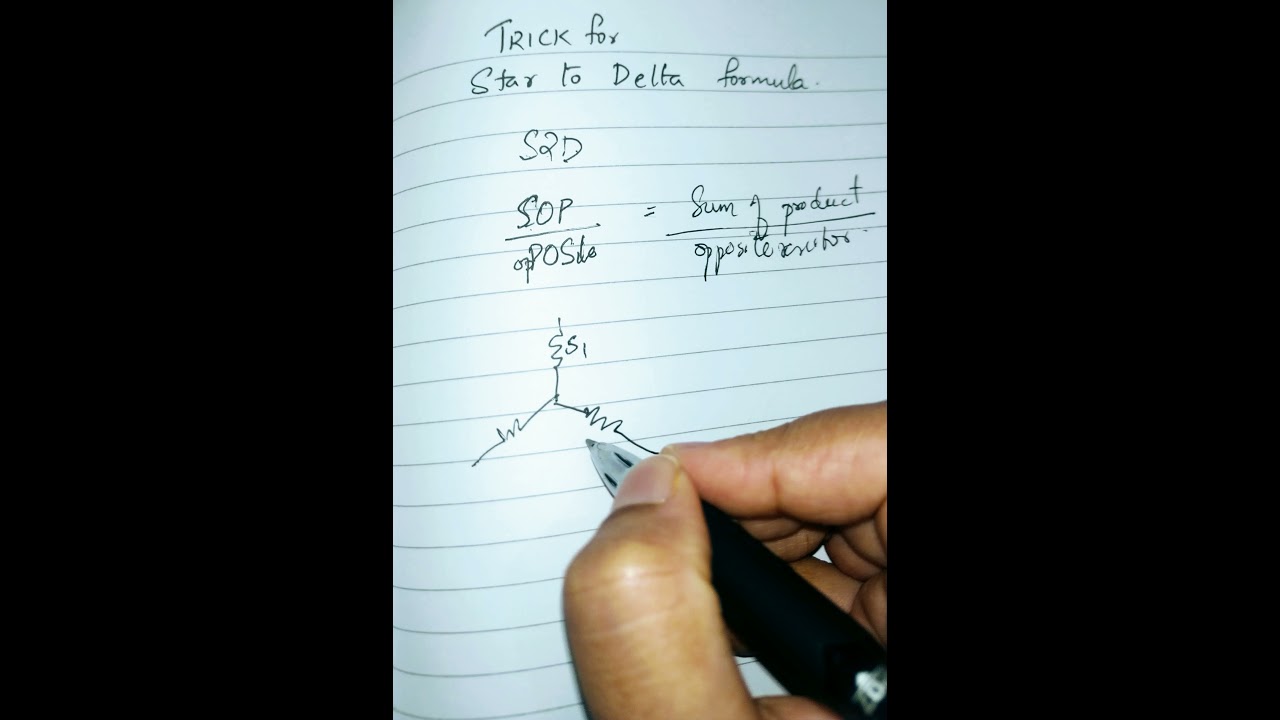 TRICK for
Star to Delta formula.
S2D
SOP = Sum of product
opPOSite opposite resistor.
S1